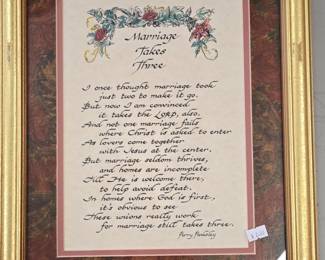 Marriage
Takes
Three
I once thought marriage took
just two to make it go.
But now I am convinced
it takes the LORD, also.
And not one marriage fails
where Christ is asked to enter
As lovers come together
with Jesus at the center.
But marriage seldom thrives,
and homes are incomplete
Till He is welcome there,
to help avoid defeat.
In homes where God is first,
it's obvious to see
These unions really work,
for marriage still takes three.
Perry Tanksley